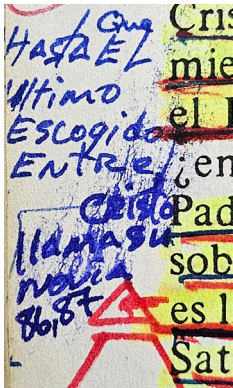 ¡Que
HASTA EL
último
Escogido
ENTRE!
CRISTO
llama su
novia
86, 87
Cris
mie
el
¿en
Pad
sob
es l
Sat